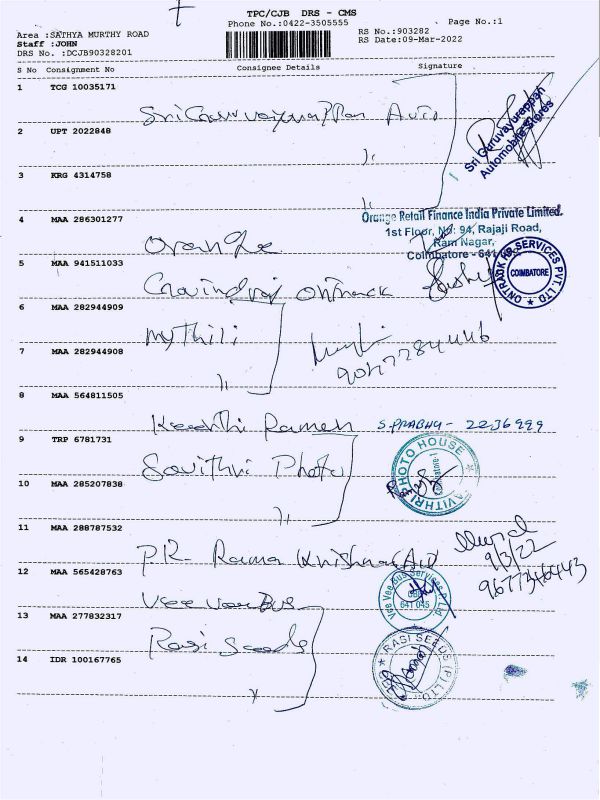 TPC/CJB DRS - CMS
Phone No.:0422-3505555
Page No.:1
Area :SATHYA MURTHY ROAD
Staff :JOHN
DRS No. :DCJB90328201
RS No.:903282
RS Date:09-Mar-2022
S No Consignment No Consignee Details Signature
1 TCG 10035171
2 UPT 2022848
Sri Guruvayurappan
Automobile Stores
3 KRG 4314758
4 MAA 286301277
Orange Retail Finance India Private Limited.
1st Floor, No: 94, Rajaji Road,
Ram Nagar,
Coimbatore - 641
Orange
5 MAA 941511033
ONTRACK HR SERVICES PVT. LTD
COIMBATORE
6 MAA 282944909
Mythili
7 MAA 282944908
8 MAA 564811505
Keerthi Ramesh S.PRABHU - 2236999
9 TRP 6781731
Savithri Photo
SAVITHRI PHOTO HOUSE
Coimbatore-1
10 MAA 285207838
11 MAA 288787532
P.R. Rama Krishna
9/3/22
12 MAA 565428763
Vee Vee Bus
Vee Vee Bus Services P Ltd
641 045
13 MAA 277832317
Rasi Seeds
RASI SEEDS (P) LTD
14 IDR 100167765